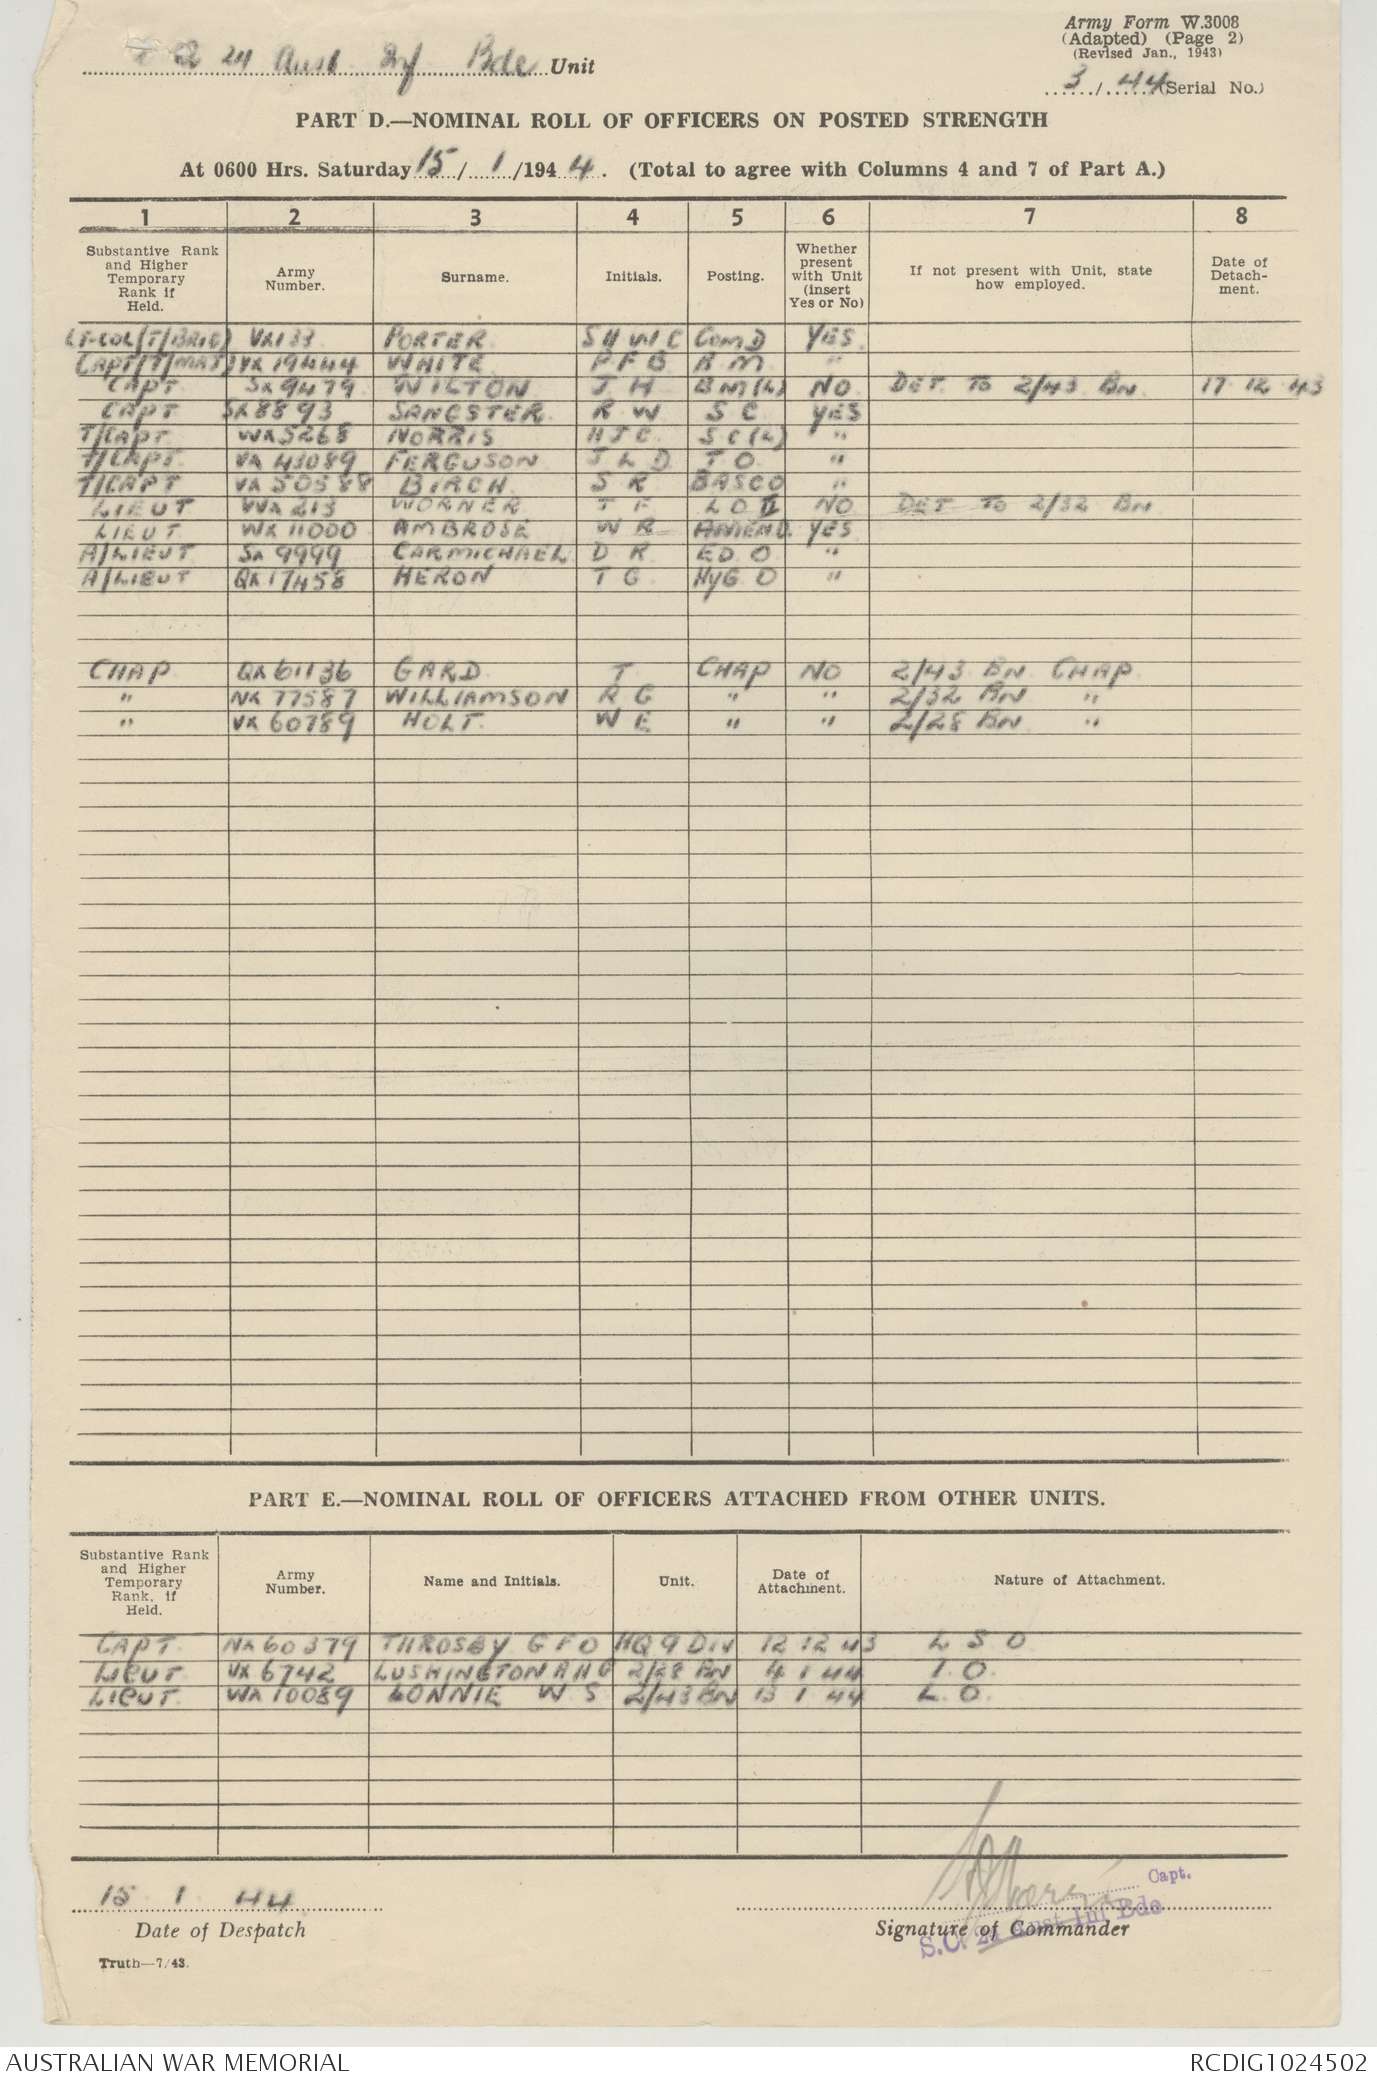 Army Form W.3008
(Adapted) (Page 2)
(Revised Jan., 1943)
24 Aust Inf Bde Unit
3/44 (Serial No.)
PART D.—NOMINAL ROLL OF OFFICERS ON POSTED STRENGTH
At 0600 Hrs. Saturday 15/1/1944. (Total to agree with Columns 4 and 7 of Part A.)
1 2 3 4 5 6 7 8
Substantive Rank and Higher Temporary Rank if Held. Army Number. Surname. Initials. Posting. Whether present with Unit (insert Yes or No) If not present with Unit, state how employed. Date of Detach-ment.
LT-COL(T/BRIG) VX133 PORTER S H W C COMD YES
CAPT(T/MAJ) VX19444 WHITE P F B B M "
CAPT SX9479 WILTON J H BM(L) NO DET TO 2/43 BN 17 12 43
CAPT SX8893 SANGSTER R W S C YES
T/CAPT WX5268 NORRIS H J C S C (L) "
T/CAPT VX43089 FERGUSON J L D T O "
T/CAPT VX50588 BIRCH S R BASCO "
LIEUT WX213 WORNER T F L O II NO DET TO 2/32 BN
LIEUT WX11000 AMBROSE W R AMEND YES
A/LIEUT SX9999 CARMICHAEL D R ED O "
A/LIEUT QX17458 HERON T G HYG O "
CHAP QX61136 GARD T CHAP NO 2/43 BN CHAP
" NX77587 WILLIAMSON R G " " 2/32 BN "
" VX60789 HOLT W E " " 2/28 BN "
PART E.—NOMINAL ROLL OF OFFICERS ATTACHED FROM OTHER UNITS.
Substantive Rank and Higher Temporary Rank, if Held. Army Number. Name and Initials. Unit. Date of Attachment. Nature of Attachment.
CAPT NX60379 THROSBY G F O HQ 9 DIV 12 12 43 L S O
LIEUT VX6742 LUSHINGTON R H G 2/28 BN 4 1 44 I O
LIEUT WX10089 LONNIE W S 2/43 BN 13 1 44 L O
15 1 44
Capt.
Date of Despatch
Signature of Commander
S.C. 24 Aust Inf Bde
Truth—7/43.
AUSTRALIAN WAR MEMORIAL
RCDIG1024502